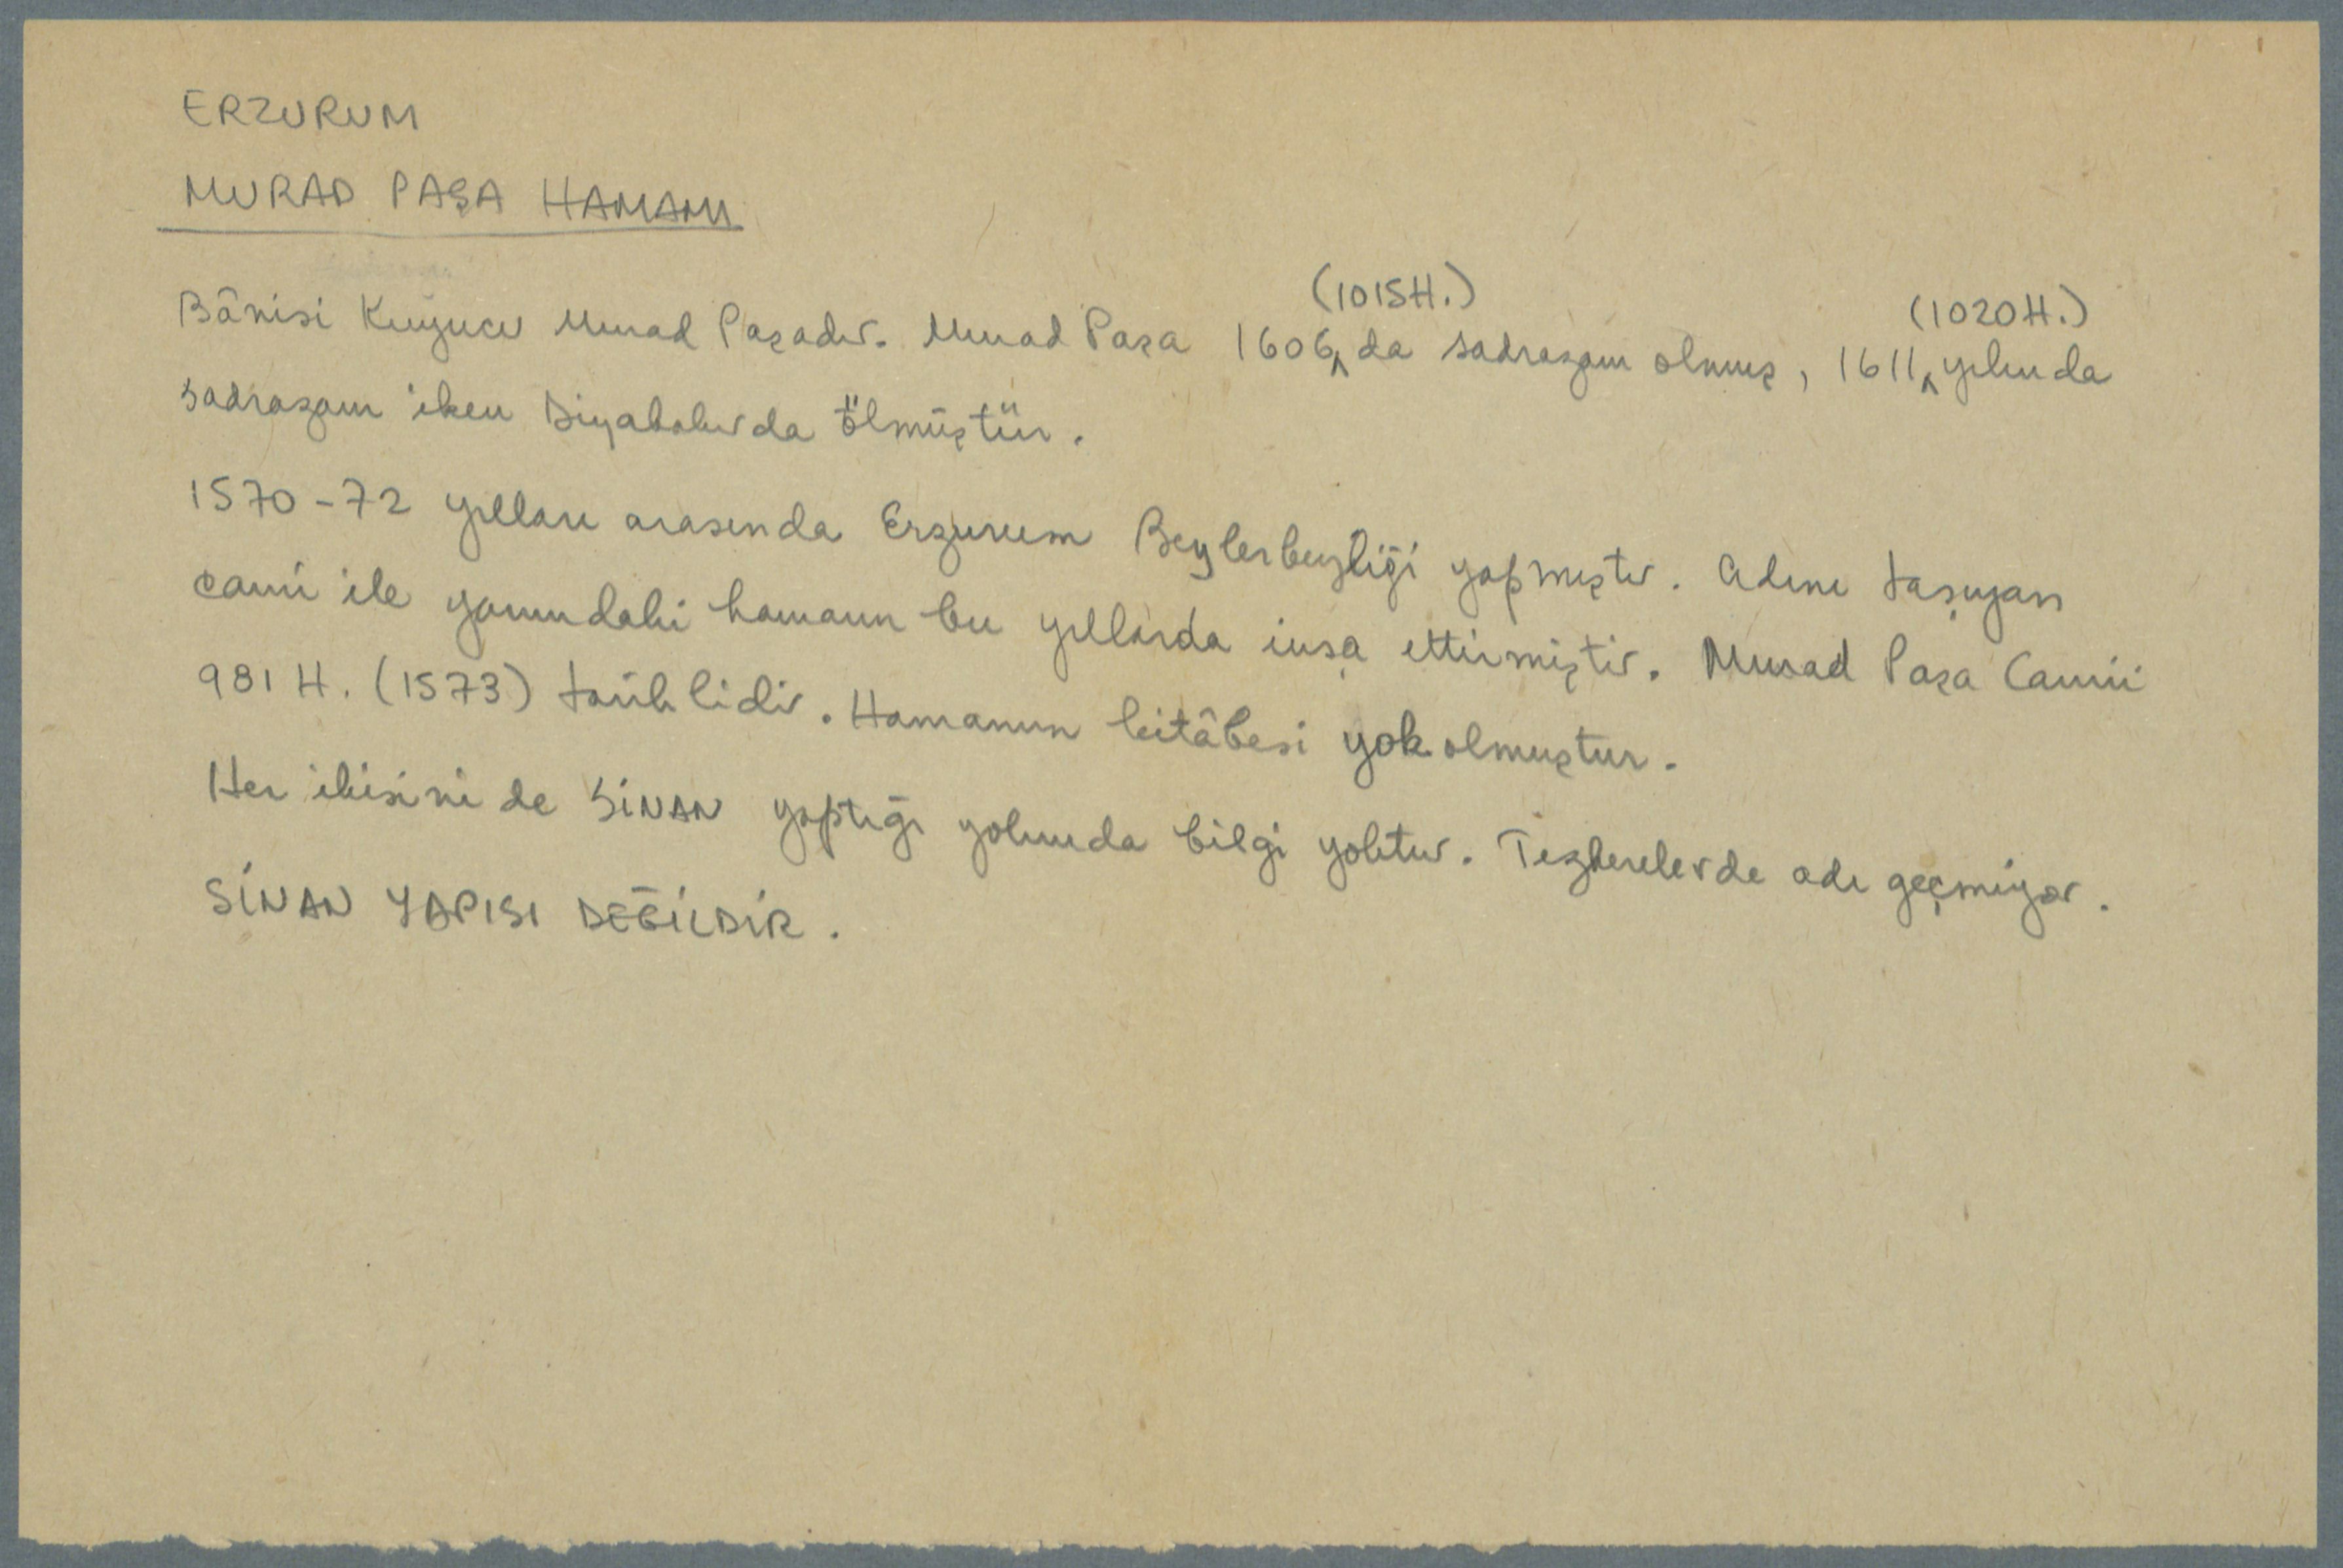 ERZURUM
MURAD PAŞA HAMAMI
(1015H.) (1020H.)
Bânisi Kuyucu Murad Paşadır. Murad Paşa 1606 da sadrazam olmuş, 1611 yılında
sadrazam iken Diyabakırda ölmüştür.
1570-72 yılları arasında Erzurum Beylerbeyliği yapmıştır. Adını taşıyan
cami ile yanındaki hamamı bu yıllarda inşa ettirmiştir. Murad Paşa Camii
981 H. (1573) tarihlidir. Hamamın kitâbesi yok olmuştur.
Her ikisini de SİNAN yaptığı yolunda bilgi yoktur. Tezkerelerde adı geçmiyor.
SİNAN YAPISI DEĞİLDİR.